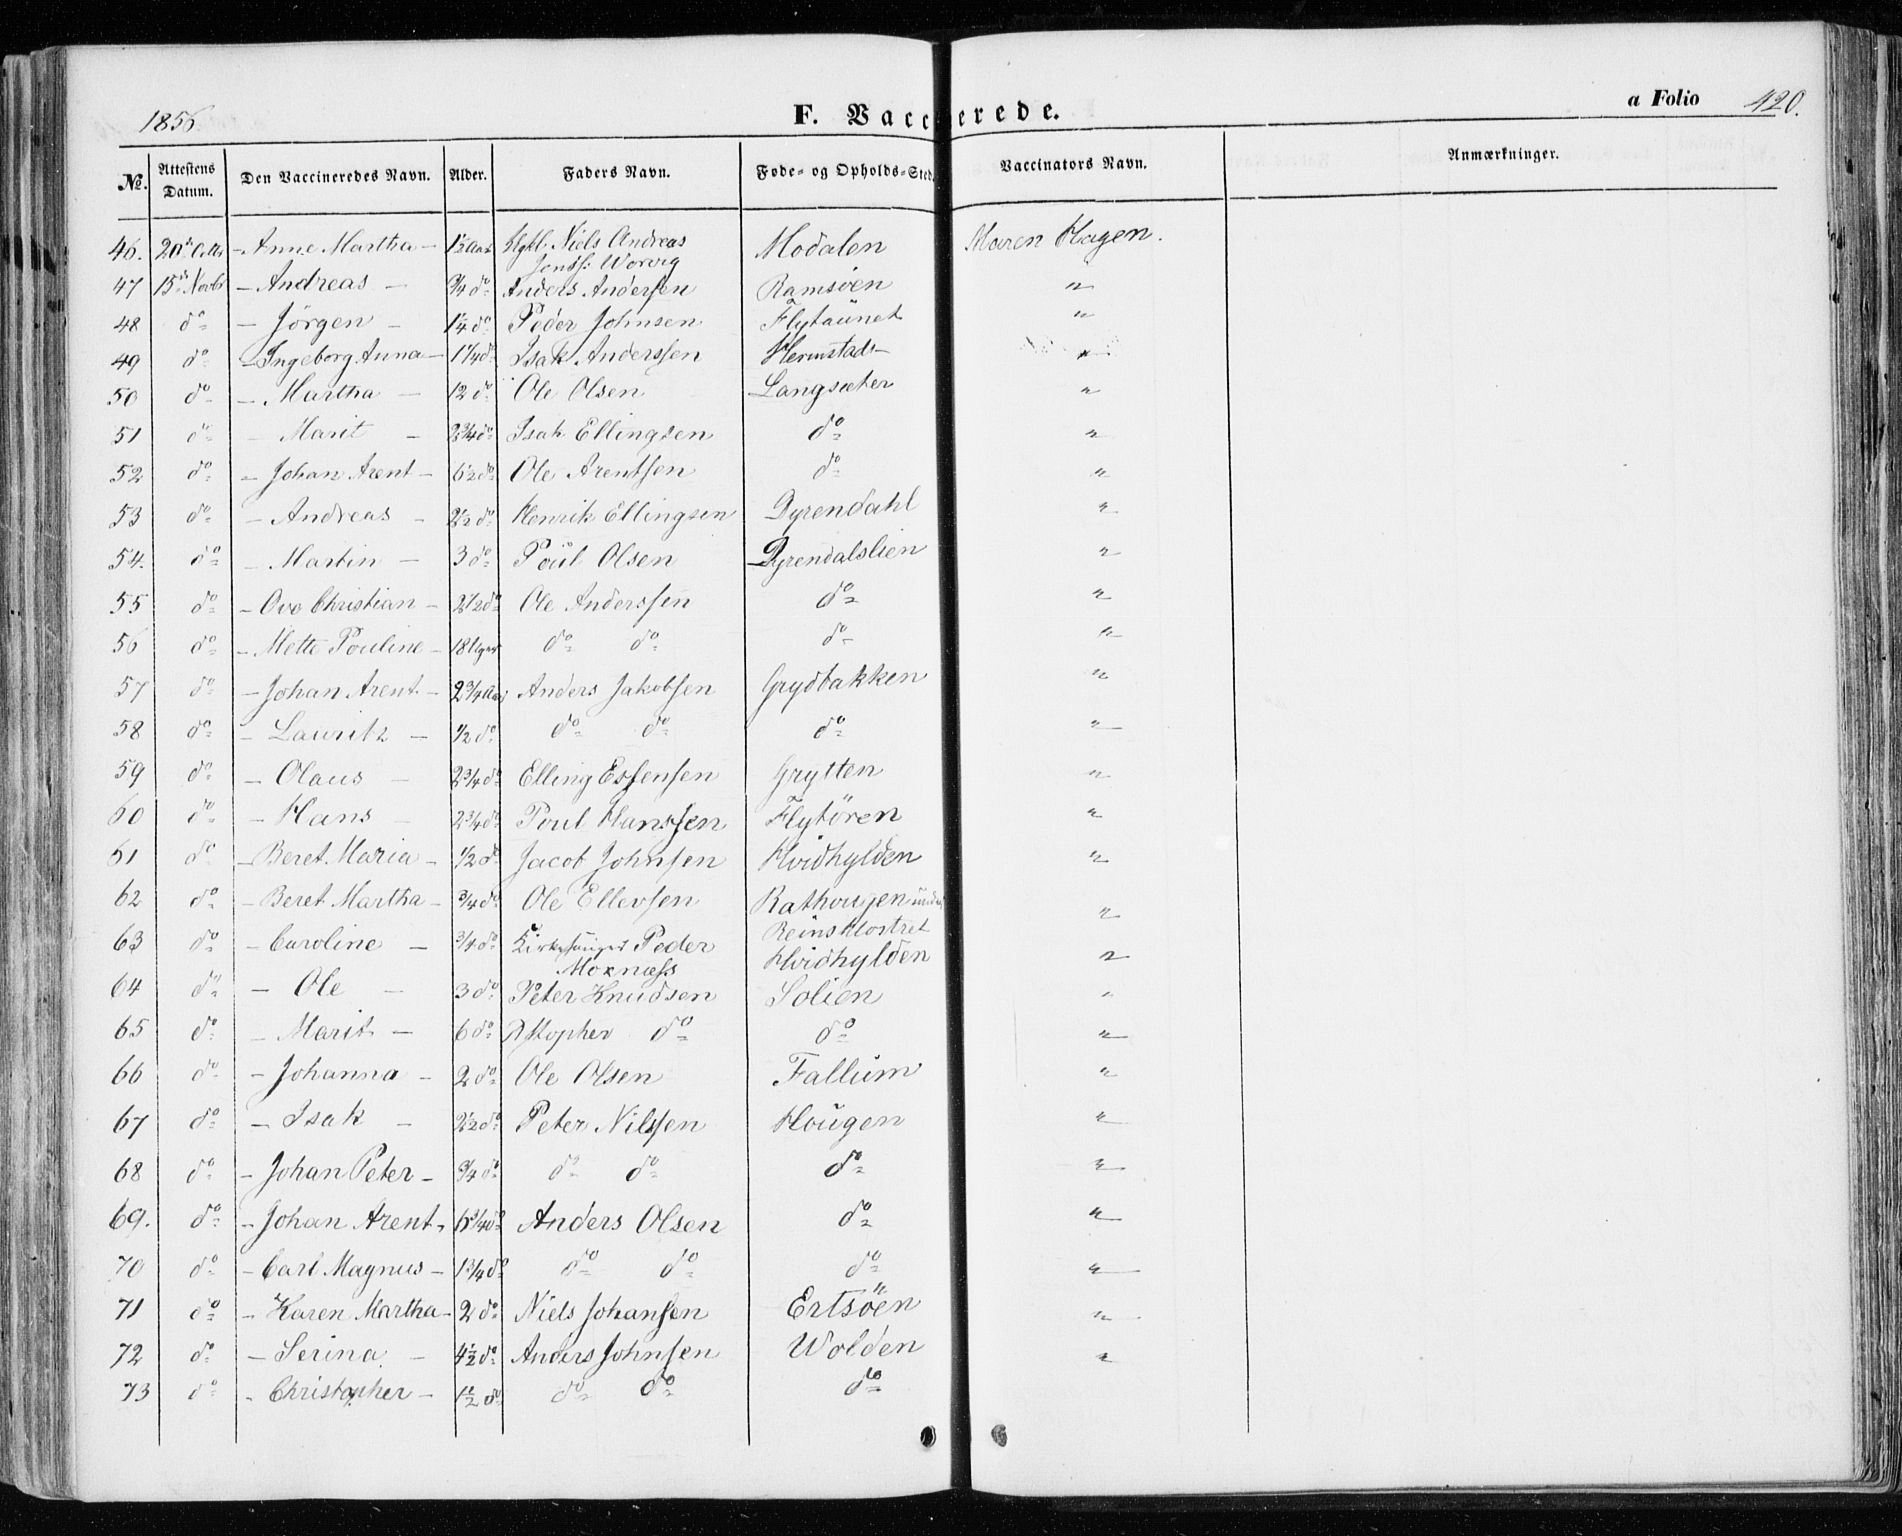 1856 F. Vaccinerede. a Folio 420.
No. Attestens Datum. Den Vaccineredes Navn. Alder. Faders Navn. Føde- og Opholds-Sted. Vaccinators Navn. Anmærkninger.
46. 20de Octbr - Anne Martha - 1½ Aar Niels Andreas Modalen Maren Hagen.
Jonss: Worvig
47 15de Novbr - Andreas - ¾ do Anders Andersen Ramsöen "
48 do - Jörgen - 1¼ do Peder Johnsen Flytaunet "
49 do - Ingeborg Anna - 1¼ do Isak Anderssen Hermstad "
50 do - Martha - 12 do Ole Olsen Langsæter "
51 do - Marit - 2¾ do Isak Ellingsen do "
52 do - Johan Arent - 6½ do Ole Arentsen do "
53 do - Andreas - 2½ do Henrik Ellingsen Dyrendahl "
54. do - Martin - 3 do Poul Olsen Dyrendalslien "
55 do - Ove Christian - 2½ do Ole Anderssen do "
56 do - Mette Pouline - 18 Uger do do do "
57 do - Johan Arent - 2¾ Aar Anders Jakobsen Grydbakken "
58 do - Lauritz - ½ do do do do "
59 do - Olaus - 2¾ do Elling Essensen Grytten "
60 do - Hans - 2¾ do Poul Hanssen Flytören "
61 do - Beret Maria - ½ do Jacob Johnsen Hvidhylden "
62 do - Beret Martha - ¾ do Ole Ellevsen Rathougen under "
Reinsklostret
63 do - Caroline - ¾ do Kirkesanger Peder Hvidhylden "
Moxness
64 do - Ole - 3 do Peter Knudsen Solien "
65 do - Marit - 6 do do do "
66 do - Johanna - 2 do Ole Olsen Fallum "
67 do - Isak - 2½ do Peter Nilssen Hougen "
68 do - Johan Peter - ¾ do do do do "
69. do - Johan Arent - 6¾ do Anders Olsen do "
70 do - Carl Magnus - 1¾ do do do do "
71 do - Karen Martha - 2 do Niels Johansen Ertsöen "
72 do - Serina - 4½ do Anders Johnsen Wolden "
73 do - Christopher - 1½ do do do do